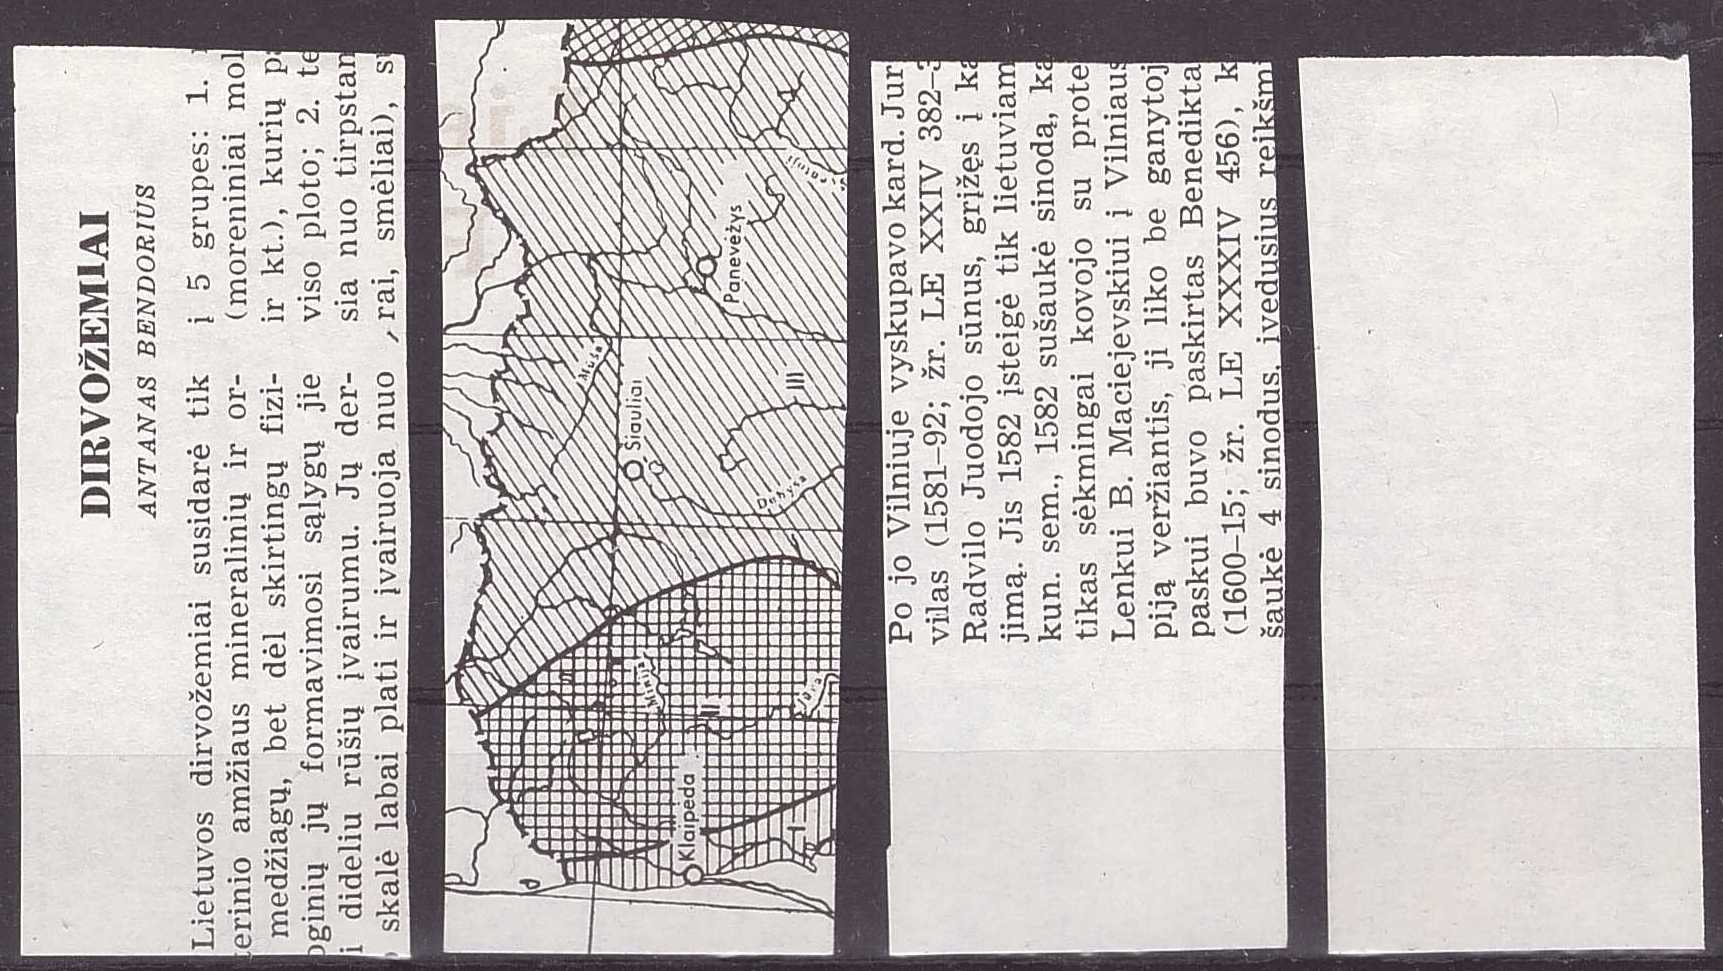 DIRVOŽEMIAI
ANTANAS BENDORIUS
Lietuvos dirvožemiai susidarė tik
terinio amžiaus mineralinių ir or-
medžiagų, bet dėl skirtingų fizi-
oginių jų formavimosi sąlygų jie
i dideliu rūšių įvairumu. Jų der-
skalė labai plati ir įvairuoja nuo
į 5 grupes: 1.
(moreniniai mol
ir kt.), kurių pa
viso ploto; 2. te
sia nuo tirpstan
rai, smėliai), s
Panevėžys
Mūša
Šiauliai
III
Dubysa
Minija
II
Jūra
Klaipėda
I
Po jo Vilniuje vyskupavo kard. Jur
vilas (1581–92; žr. LE XXIV 382–3
Radvilo Juodojo sūnus, grįžęs į ka
jimą. Jis 1582 įsteigė tik lietuviam
kun. sem., 1582 sušaukė sinodą, ka
tikas sėkmingai kovojo su protes
Lenkui B. Maciejevskiui į Vilniaus
piją veržiantis, ji liko be ganytoj
paskui buvo paskirtas Benedikta
(1600–15; žr. LE XXXIV 456), k
šaukė 4 sinodus, įvedusius reikšmi